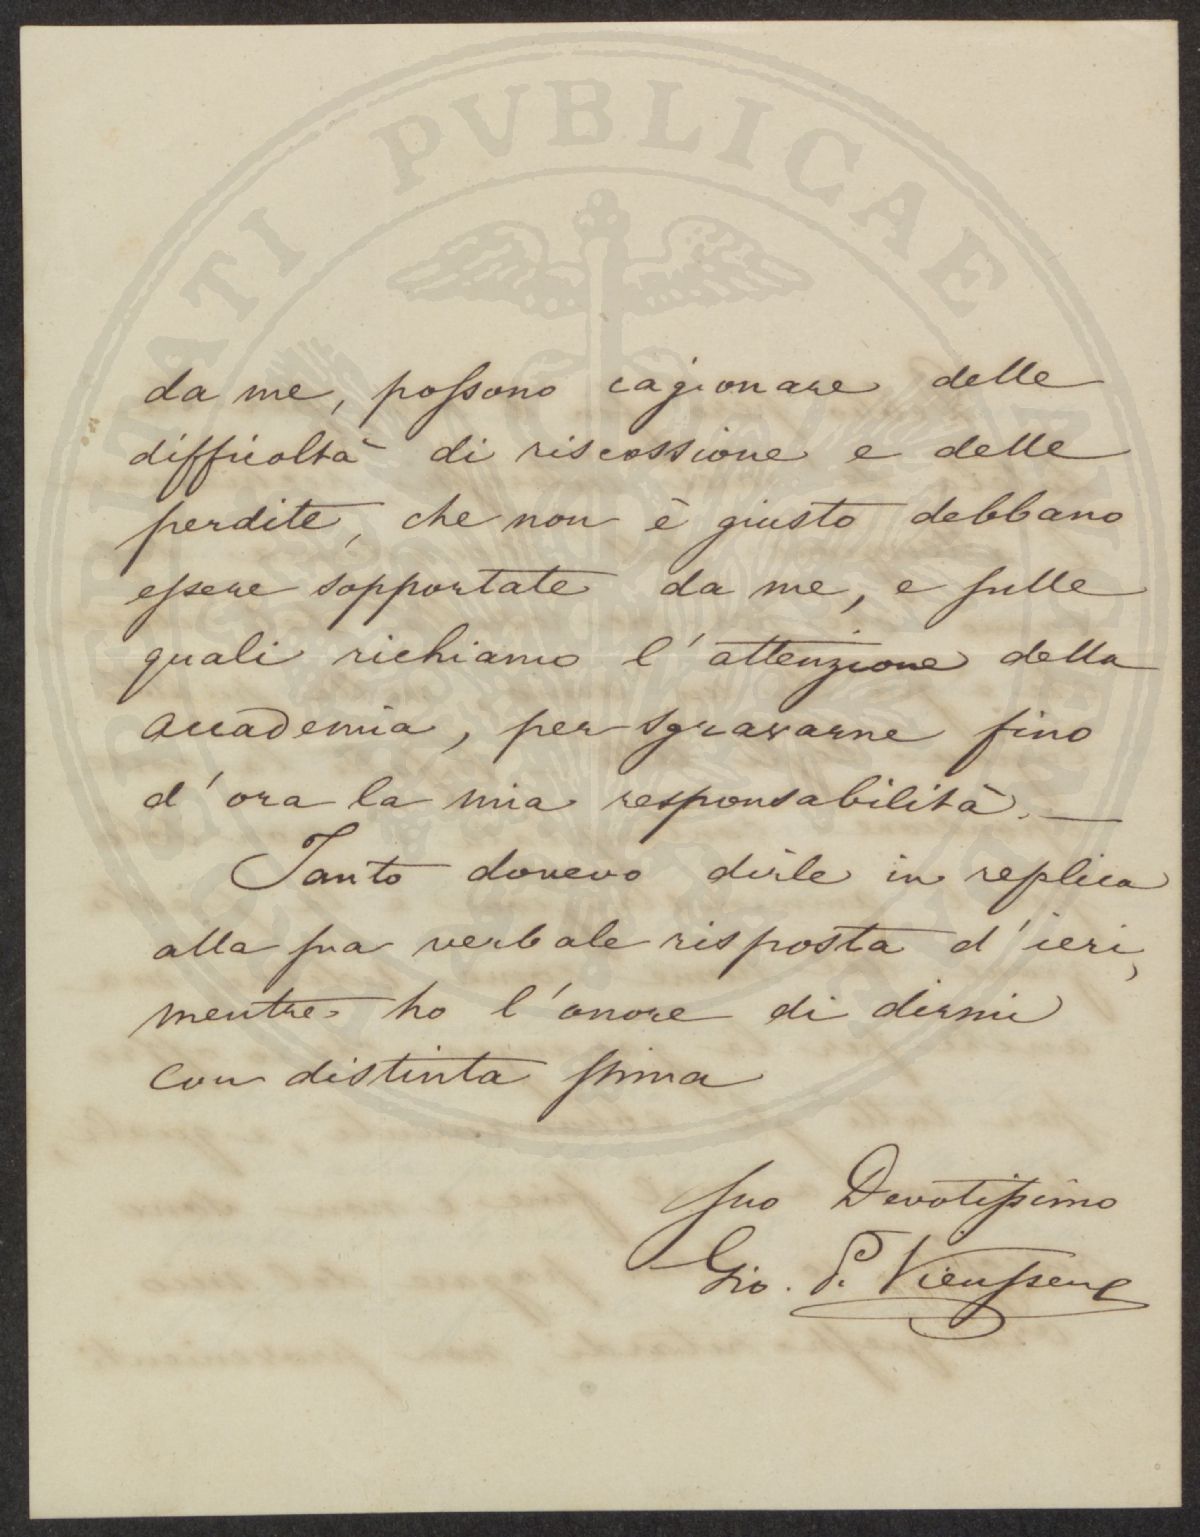 PROSPERITATI PUBLICAE AUGENDAE
da me, possono cagionare delle
difficoltà di riscossione e delle
perdite, che non è giusto debbano
essere sopportate da me, e sulle
quali richiamo l'attenzione della
Accademia, per sgravarne fino
d'ora la mia responsabilità. —
Tanto dovevo dirle in replica
alla sua verbale risposta d'ieri,
mentre ho l'onore di dirmi
con distinta stima
Suo Devotissimo
Gio. P. Vieusseux